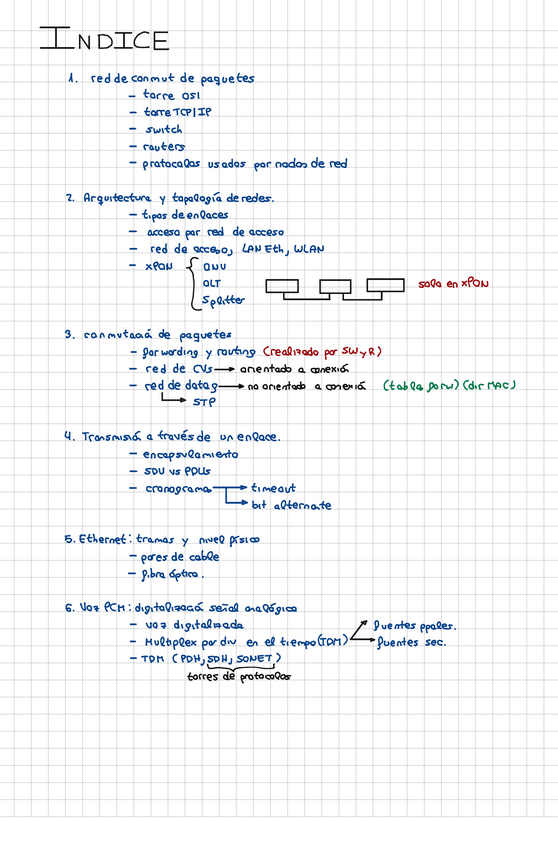 INDICE
1. red de conmut de paquetes
– torre OSI
– torre TCP/IP
– switch
– routers
– protocolos usados por nodos de red
2. Arquitectura y topología de redes.
– tipos de enlaces
– acceso por red de acceso
– red de acceso, LAN Eth, WLAN
– xPON { ONU
OLT
Splitter
solo en xPON
3. conmutació de paquetes
– forwarding y routing (realizado por SW y R)
– red de CVs → orientado a conexió
– red de datag → no orientado a conexió (tabla forw) (dir MAC)
→ STP
4. Transmisió a través de un enlace.
– encapsulamiento
– SDU vs PDUs
– cronograma → timeout
→ bit alternate
5. Ethernet: tramas y nivel físico
– pares de cable
– fibra óptica.
6. Voz PCM: digitalizació señal analógica
– voz digitalizada
– Multiplex por div en el tiempo (TDM) → fuentes ppales.
→ fuentes sec.
– TDM (PDH, SDH, SONET)
torres de protocolos